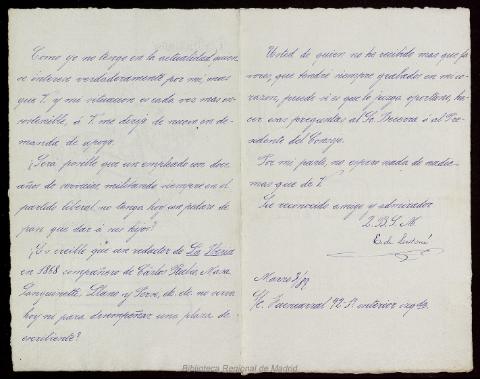 Como yo no tengo en la actualidad quien
se interese verdaderamente por mi, mas
que V. y mi situacion es cada vez mas in-
sostenible, á V. me dirijo de nuevo en de-
manda de apoyo.
¿Será posible que un empleado con doce
años de servicios, militando siempre en el
partido liberal, no tenga hoy un pedazo de
pan que dar á sus hijos?
¿Es creible que un redactor de La Iberia
en 1868 compañero de Carlos Rubio, Massa
Sanguinetti, Llano y Persi, etc. etc. no sirva
hoy ni para desempeñar una plaza de
escribiente?
Usted de quien no he recibido mas que fa-
vores, que tendré siempre grabados en mi co-
razon, puede si es que lo juzga oportuno, ha-
cer esas preguntas al Sr. ó al Pre-
sidente del Consejo.
Por mi parte, no espero nada de nadie
mas que de V.
Su reconocido amigo y admirador
Q. B. S. M.
E. de
Marzo
Fuencarral 92 interior izqda.
Biblioteca Regional de Madrid